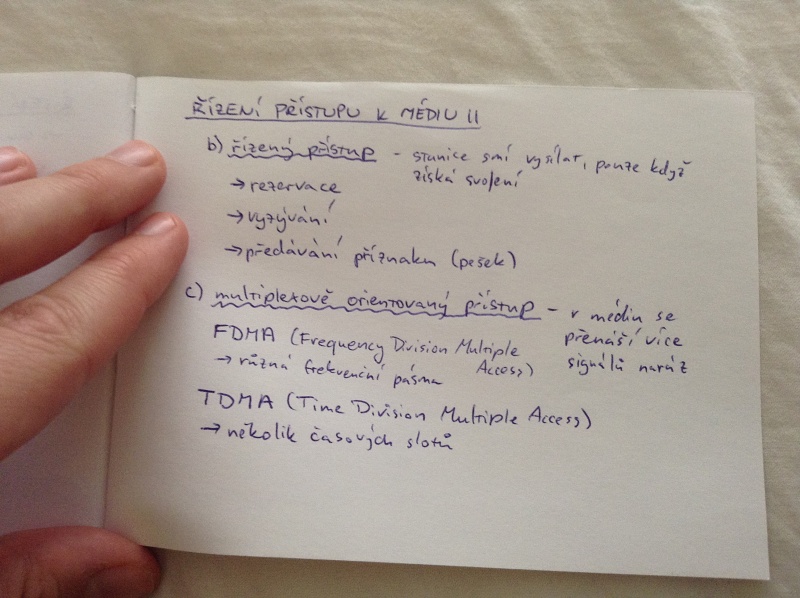 ŘÍZENÍ PŘÍSTUPU K MÉDIU II
b) řízený přístup - stanice smí vysílat, pouze když
získá svolení
→ rezervace
→ vyzývání
→ předávání příznaku (pešek)
c) multiplexově orientovaný přístup - v médiu se
přenáší více
signálů naráz
FDMA (Frequency Division Multiple
Access)
→ různá frekvenční pásma
TDMA (Time Division Multiple Access)
→ několik časových slotů